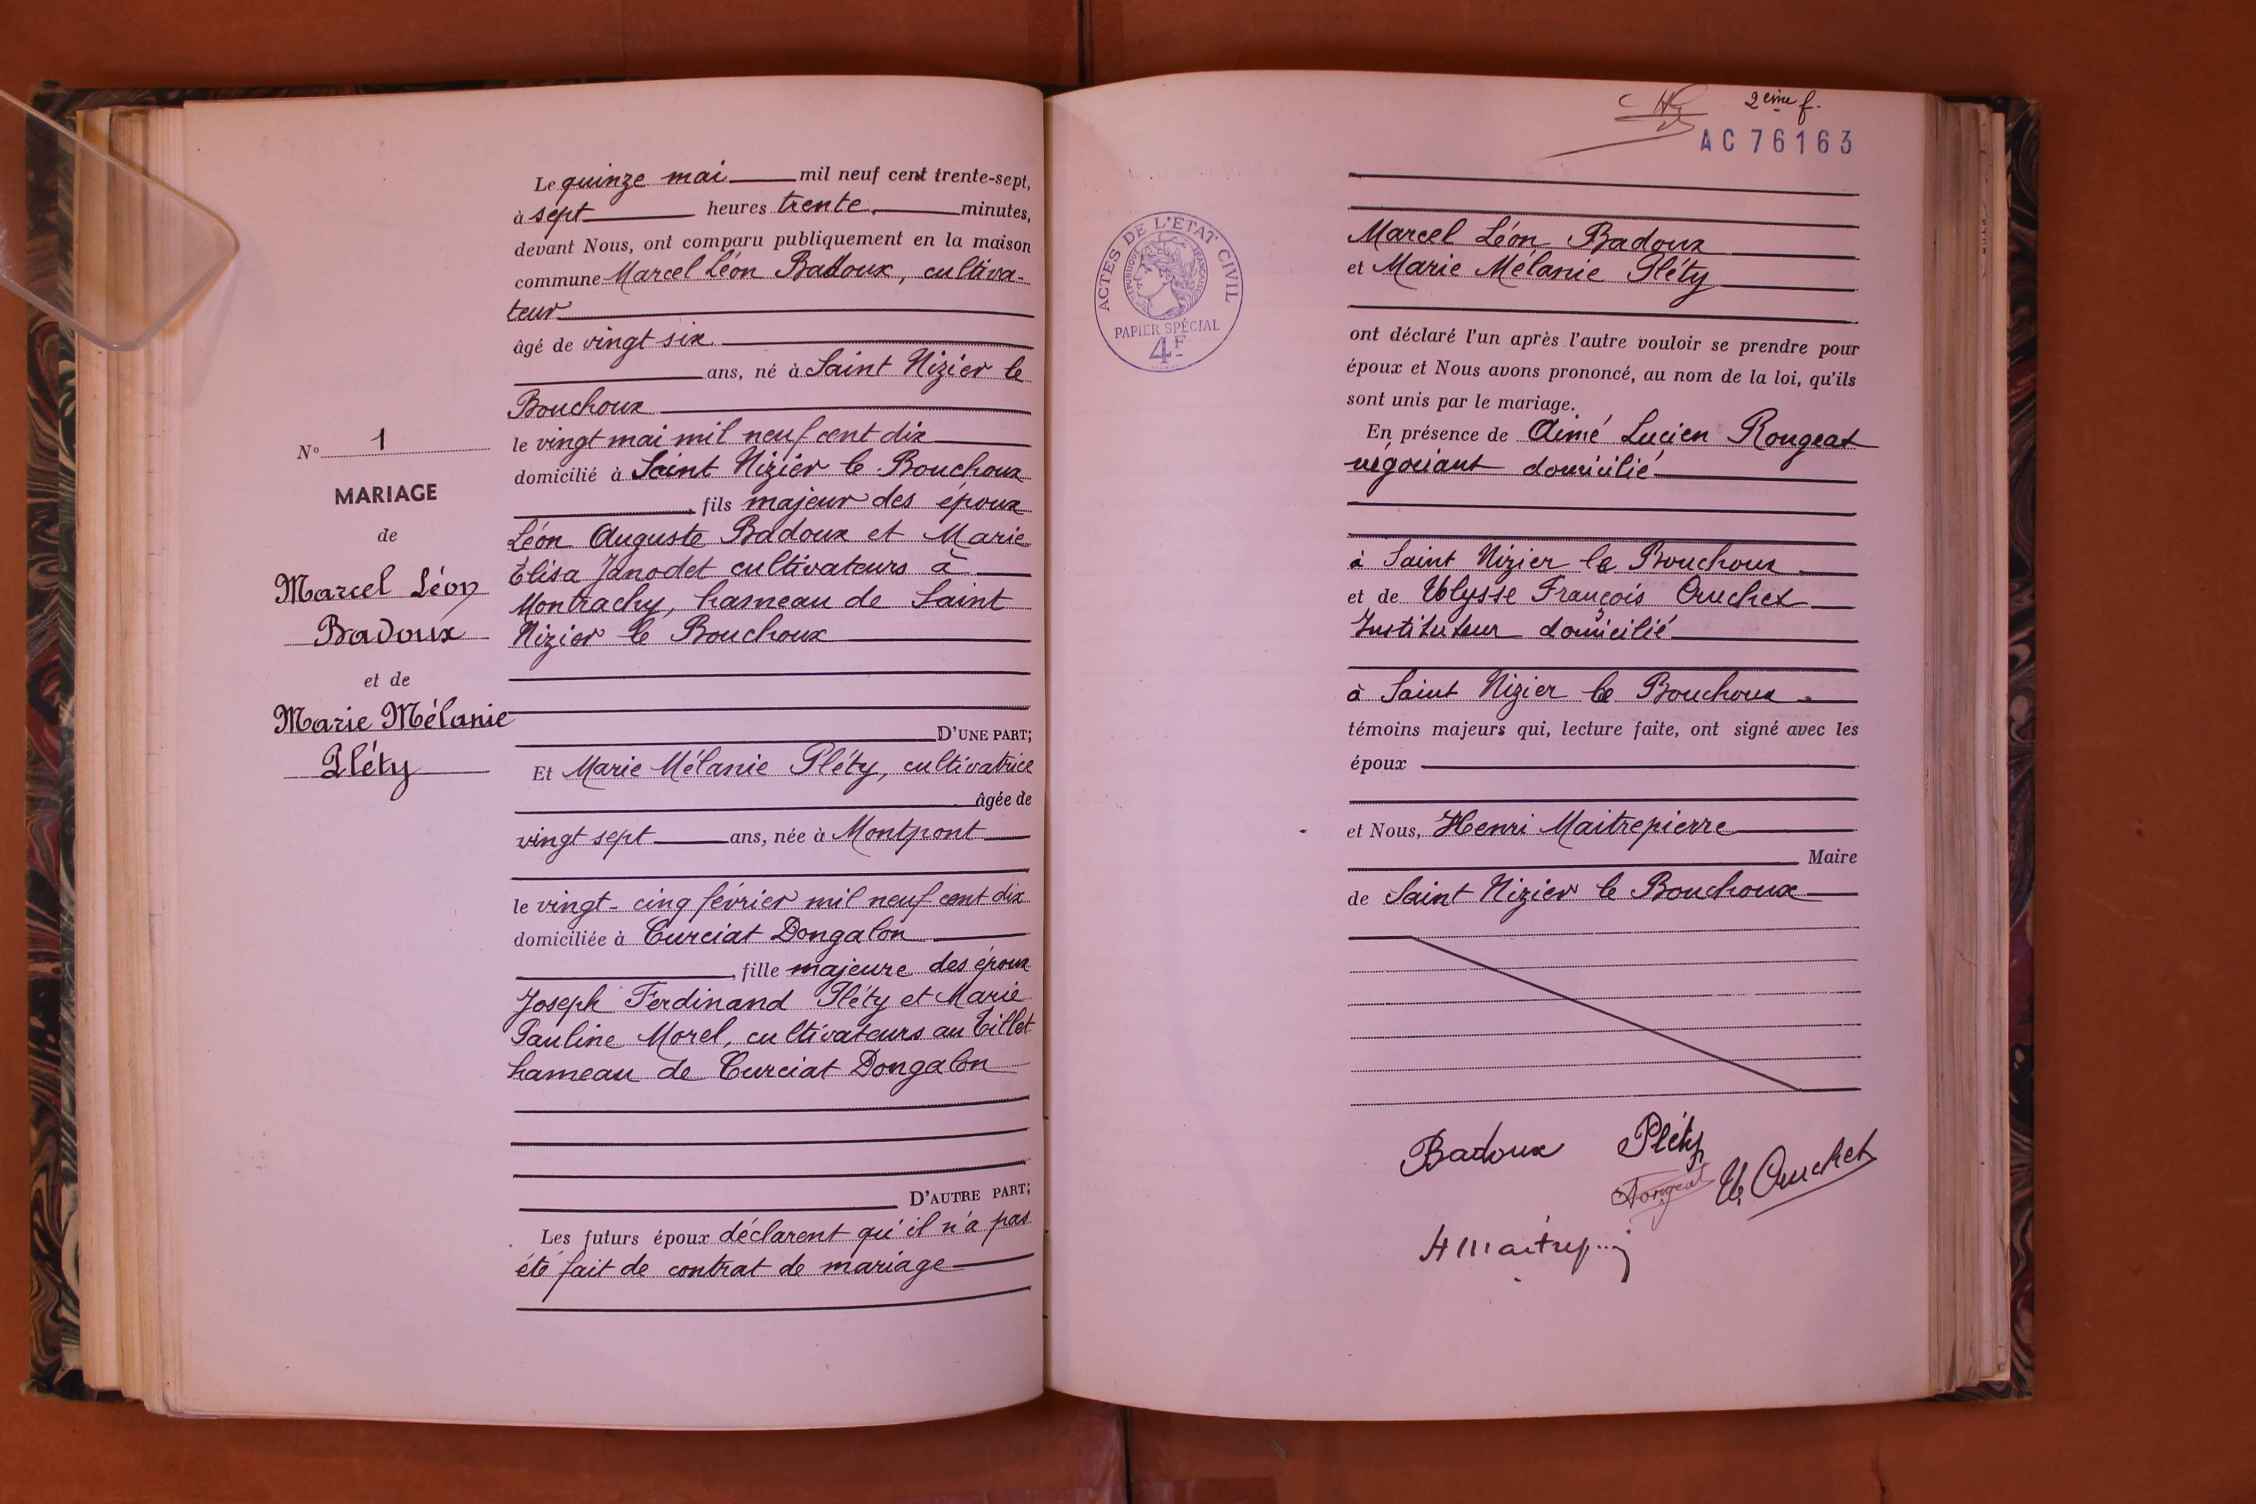 Nº 1
MARIAGE
de
Marcel Léon
Badoux
et de
Marie Mélanie
Pléty
Le quinze mai mil neuf cent trente-sept,
à sept heures trente minutes,
devant Nous, ont comparu publiquement en la maison
commune Marcel Léon Badoux, cultiva-
teur
âgé de vingt six
ans, né à Saint Nizier le
Bouchoux
le vingt mai mil neuf cent dix
domicilié à Saint Nizier le Bouchoux
, fils majeur des époux
Léon Auguste Badoux et Marie
Élisa Janodet cultivateurs à
Montrachy, hameau de Saint
Nizier le Bouchoux
D'UNE PART;
Et Marie Mélanie Pléty, cultivatrice
âgée de
vingt sept ans, née à Montpont
le vingt-cinq février mil neuf cent dix
domiciliée à Curciat Dongalon
, fille majeure des époux
Joseph Ferdinand Pléty et Marie
Pauline Morel, cultivateurs au Tillet
hameau de Curciat Dongalon
D'AUTRE PART;
Les futurs époux déclarent qu'il n'a pas
été fait de contrat de mariage
2ème f.
AC 76163
ACTES DE L'ÉTAT CIVIL
RÉPUBLIQUE FRANÇAISE
PAPIER SPÉCIAL
4F
Marcel Léon Badoux
et Marie Mélanie Pléty
ont déclaré l'un après l'autre vouloir se prendre pour
époux et Nous avons prononcé, au nom de la loi, qu'ils
sont unis par le mariage.
En présence de Aimé Lucien Rongeat
négociant domicilié
à Saint Nizier le Bouchoux
et de Ulysse François Cruchet
Instituteur domicilié
à Saint Nizier le Bouchoux
témoins majeurs qui, lecture faite, ont signé avec les
époux
et Nous, Henri Maitrepierre
Maire
de Saint Nizier le Bouchoux
Badoux Pléty
Rongeat U. Cruchet